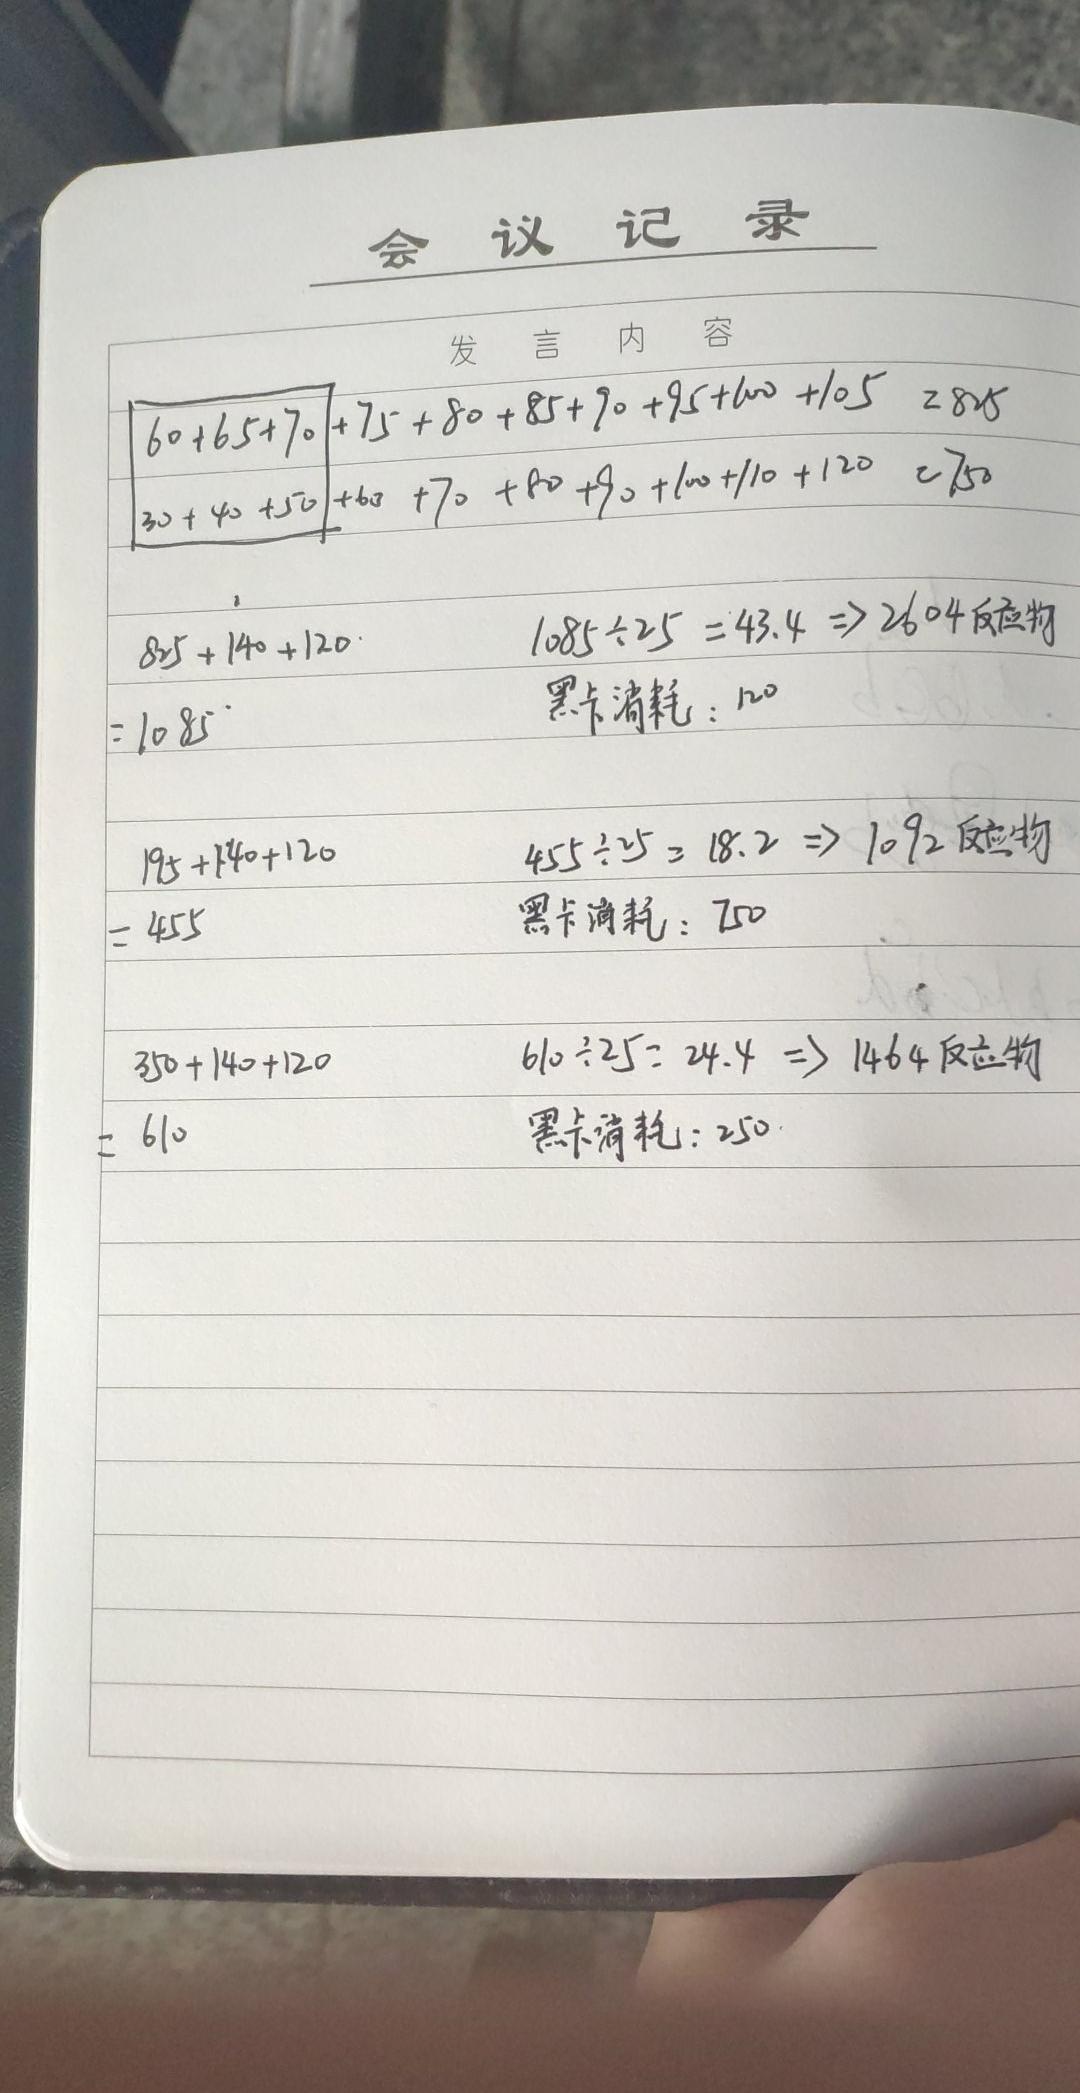 会议记录
发言内容
60+65+70+75+80+85+90+95+100+105=825
30+40+50+60+70+80+90+100+110+120=750
825+140+120 1085÷25=43.4=>2604反应物
=1085 黑卡消耗:120
195+140+120 455÷25=18.2=>1092反应物
=455 黑卡消耗:750
350+140+120 610÷25=24.4=>1464反应物
=610 黑卡消耗:250